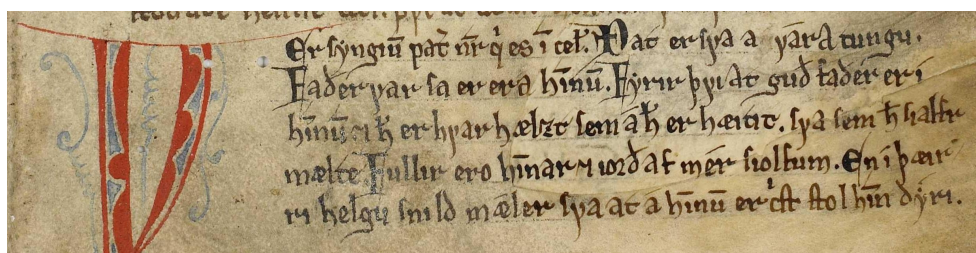 V Er syngiū pat̄ nr̄ q̇ es ī cel̄. Þat er sꝩa a ꝩára tungu.
Fader ꝩar sa er er a hīnū. Fyrir þꝩi at guð fader er i
hīnū ⁊ h̄ er hꝩar hælꝛt sem a h̄ er hæitit. sꝩa sem h̄ sialfr
mælte. Fullir ero hīnar ⁊ iord af mer siolfum. En i þæir
ri helgu snild mæler sꝩa at a hīnū er c̓st stol hīn dyri.